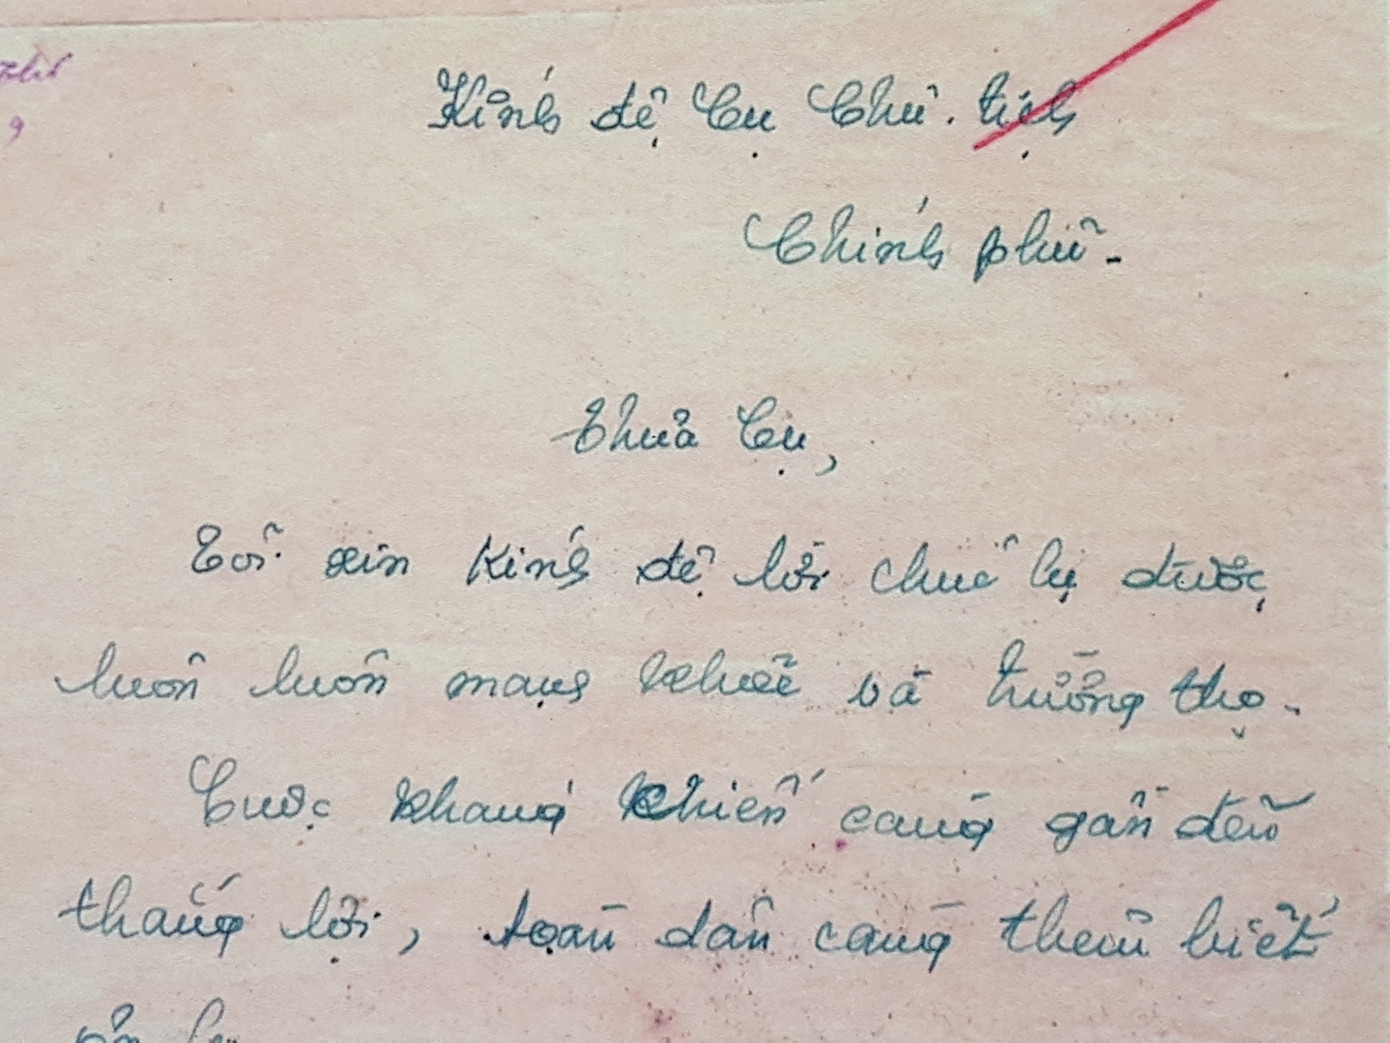 Kính đệ Cụ Chủ-tịch
Chính phủ.
Thưa Cụ,
Tôi xin kính đệ lời chúc Cụ được
luôn luôn mạng khoẻ và trường thọ.
Cuộc kháng chiến càng gần đến
thắng lợi, toàn dân càng thêm biết
ơn Cụ